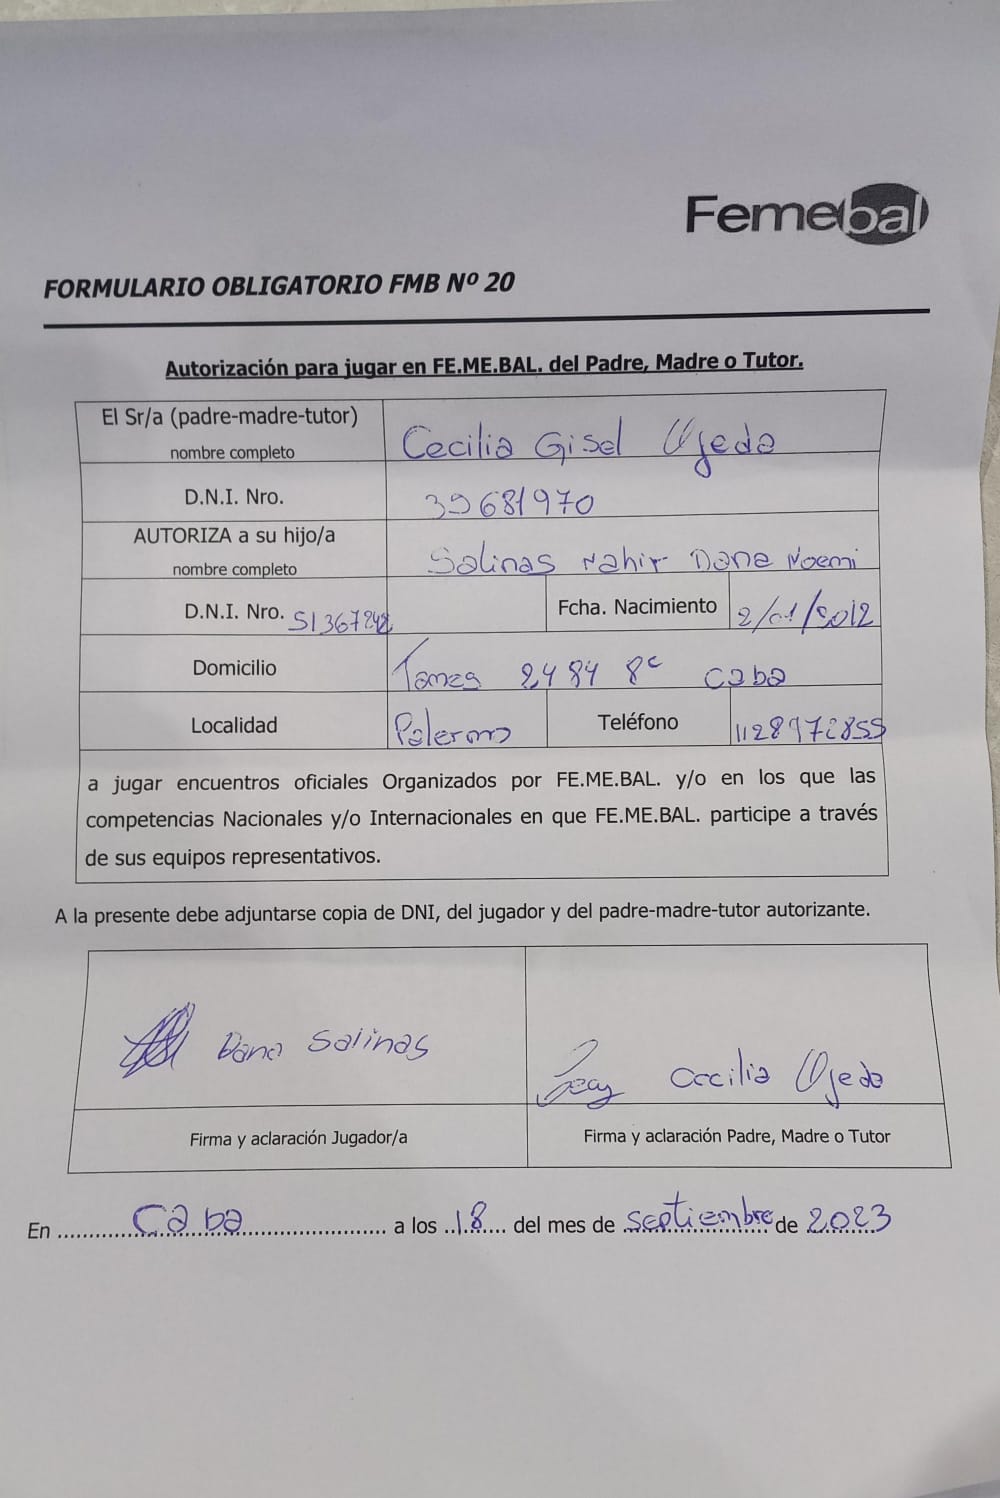 Femebal
FORMULARIO OBLIGATORIO FMB Nº 20
Autorización para jugar en FE.ME.BAL. del Padre, Madre o Tutor.
El Sr/a (padre-madre-tutor)
nombre completo
Cecilia Gisel Ojeda
D.N.I. Nro.
39681970
AUTORIZA a su hijo/a
nombre completo
Salinas Nahir Dana Noemi
D.N.I. Nro. 51367242
Fcha. Nacimiento 2/01/2012
Domicilio
2484 8º Caba
Localidad Palermo Teléfono 1128972855
a jugar encuentros oficiales Organizados por FE.ME.BAL. y/o en los que las
competencias Nacionales y/o Internacionales en que FE.ME.BAL. participe a través
de sus equipos representativos.
A la presente debe adjuntarse copia de DNI, del jugador y del padre-madre-tutor autorizante.
Dana Salinas
Cecilia Ojeda
Firma y aclaración Jugador/a
Firma y aclaración Padre, Madre o Tutor
En Caba a los 18 del mes de septiembre de 2023